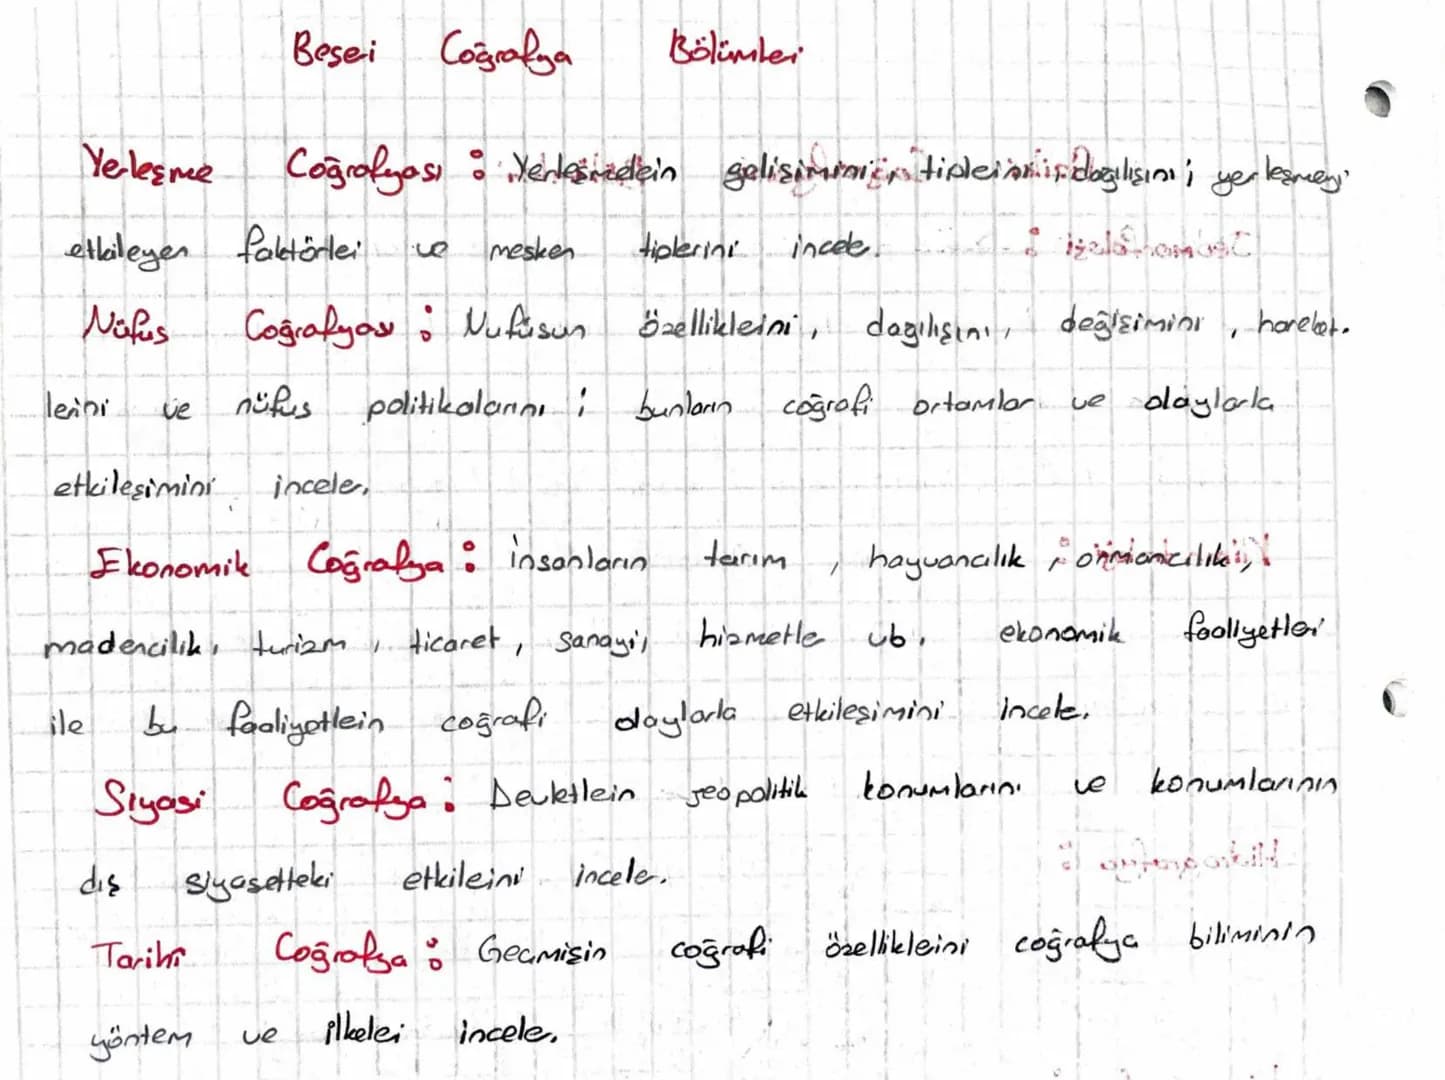 Beşeri Coğrafya Bölümleri
Yerleşme Coğrafyası : Yerleşmelerin gelişimini, tiplerini, dağılışını ; yerleşmeyi
etkileyen faktörler ve mesken tiplerini inceler.
Nüfus Coğrafyası : Nufüsun özelliklerini, dagılışını, değişimini, hareket-
lerini ve nüfus politikalarını ; bunların coğrafi ortamlar ve olaylarla
etkileşimini inceler.
Ekonomik Coğrafya : insanların tarım, hayvancılık, ormancılık,
madencilik, turizm, ticaret, sanayi, hizmetler vb. ekonomik faaliyetler
ile bu faaliyetlerin coğrafi olaylarla etkileşimini inceler.
Siyasi Coğrafya : Devletlerin jeopolitik konumlarını ve konumlarının
dış siyasetteki etkilerini inceler.
Tarihi Coğrafya : Gecmişin coğrafi özelliklerini coğrafya biliminin
yöntem ve ilkeleri inceler.